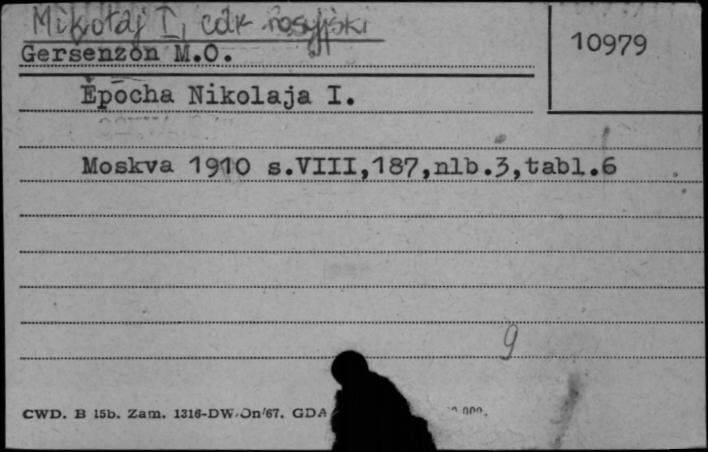 Mikołaj I, car rosyjski
10979
Gersenzon M.O.
Epocha Nikolaja I.
Moskva 1910 s.VIII,187,nlb.3,tabl.6
9
CWD. B 15b. Zam. 1316-DW-On/67. GDA 000.